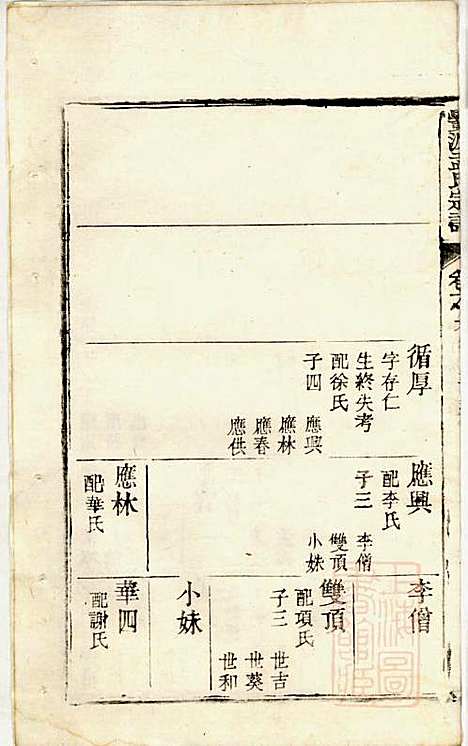 氏宗譜
循厚
字存仁
生終失考
配徐氏
子四
應興
應林
應春
應供
應興
配李氏
子三
李僧
雙頂
小妹
應林
配華氏
李僧
雙頂
配項氏
子三
世吉
世葵
世和
小妹
華四
配謝氏
上海圖